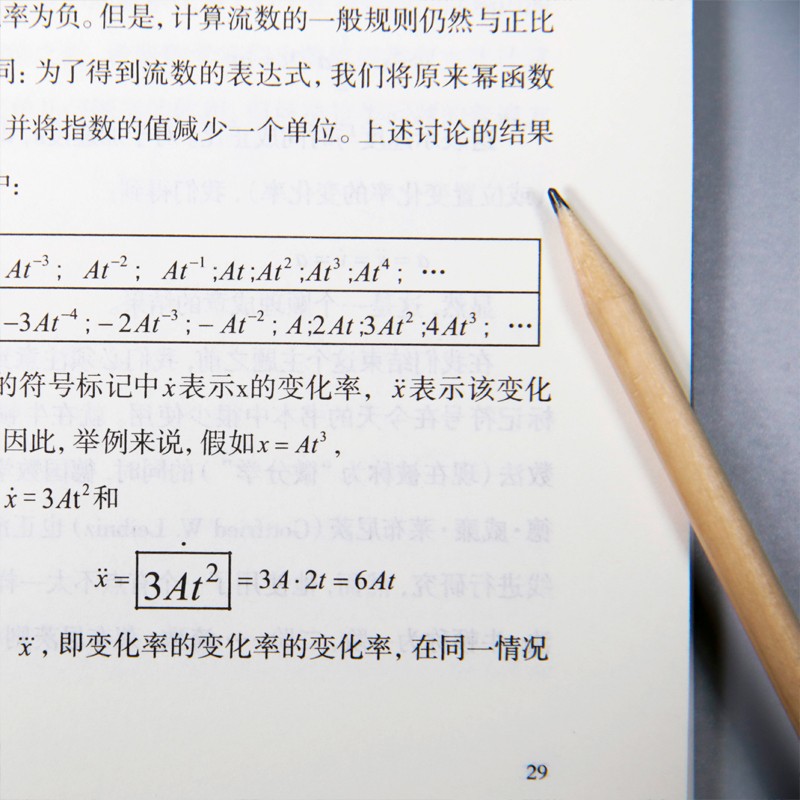 率为负。但是, 计算流数的一般规则仍然与正比
同: 为了得到流数的表达式, 我们将原来幂函数
并将指数的值减少一个单位。上述讨论的结果
中:
At⁻³ ; At⁻² ; At⁻¹ ;At;At² ;At³ ;At⁴ ; …
−3At⁻⁴ ; −2At⁻³ ; − At⁻² ; A;2At;3At² ;4At³ ; …
的符号标记中ẋ表示x的变化率, ẍ表示该变化
因此, 举例来说, 假如x = At³ ,
ẋ = 3At²和
ẍ = 3At² = 3A · 2t = 6At
ẍ , 即变化率的变化率的变化率, 在同一情况
29